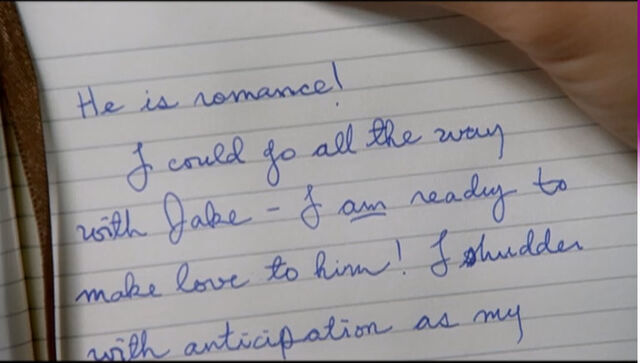 He is romance!
I could go all the way
with Jake - I am ready to
make love to him! I shudder
with anticipation as my